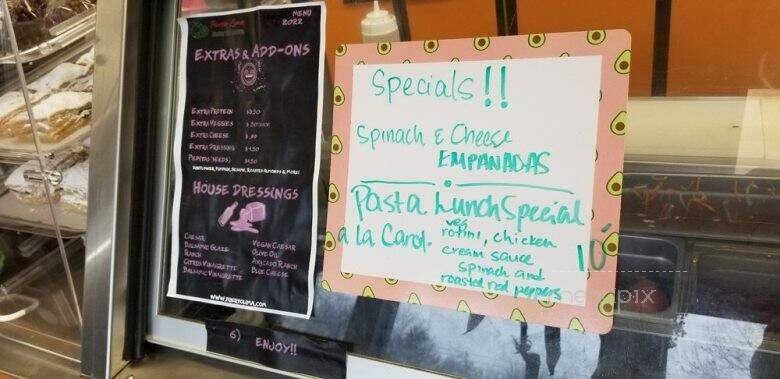 MENU
2022
EXTRAS & ADD-ONS
EXTRA PROTEIN
EXTRA VEGGIES
EXTRA CHEESE
EXTRA DRESSING
PEPITAS (SEEDS)
HOUSE DRESSINGS
CAESAR
BALSAMIC GLAZE
RANCH
CITRUS VINAIGRETTE
BALSAMIC VINAIGRETTE
VEGAN CAESAR
OLIVE OIL
AVOCADO RANCH
BLUE CHEESE
6) ENJOY!!
Specials!!
Spinach & Cheese
EMPANADAS
Pasta Lunch Special
a la Carol.
veg
rotini, chicken
cream sauce
spinach and
roasted red peppers
10